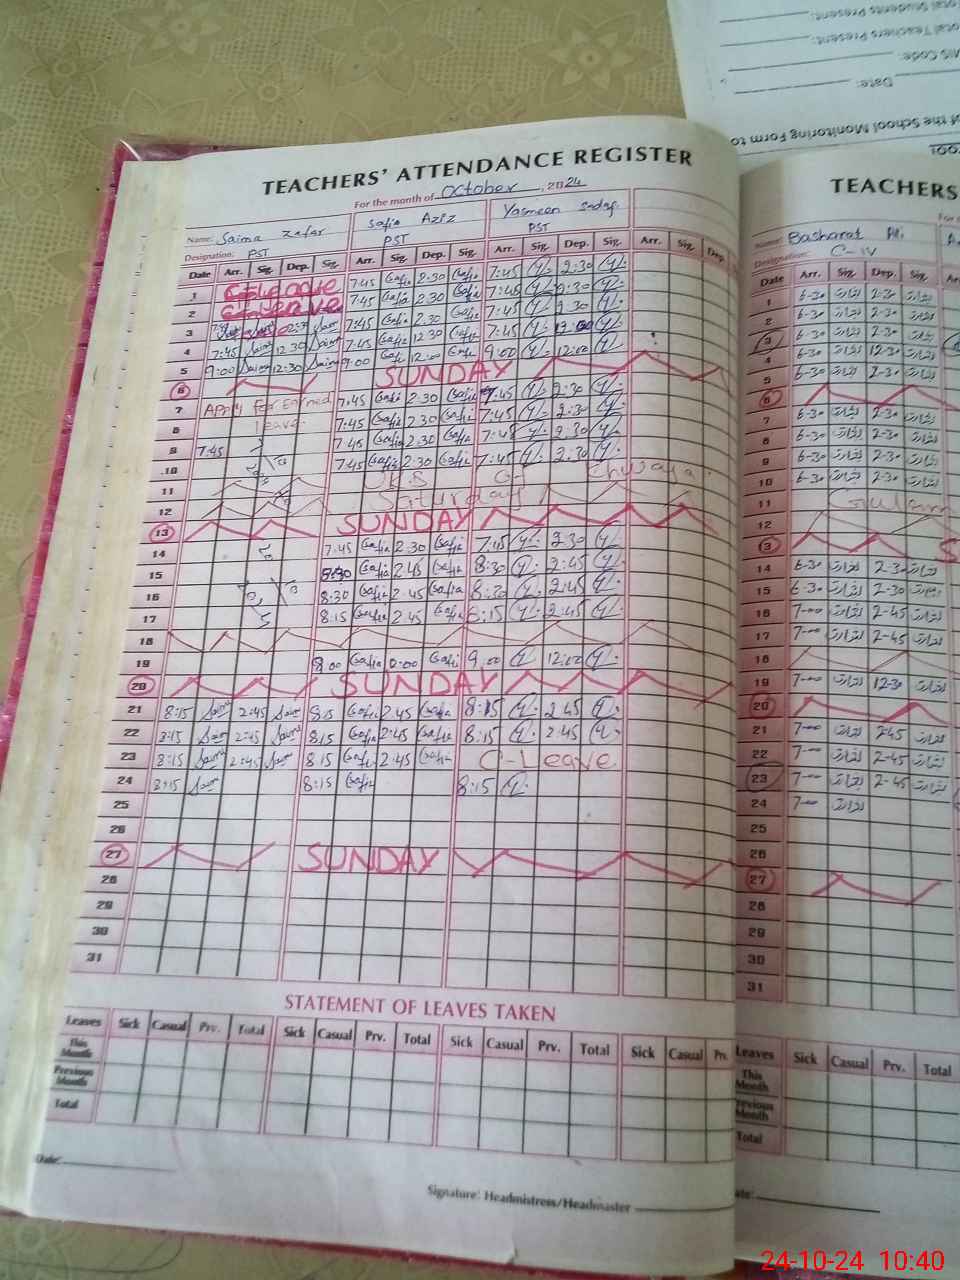 Total Students Present:
Total Teachers Present:
MIS Code:
Date:
of the School Monitoring Form to
TEACHERS' ATTENDANCE REGISTER
For the month of October, 2024
Name: Saima Zafar Safia Aziz Yasmeen Sadaf
Designation: PST PST PST
Date Arr. Sig. Dep. Sig. Arr. Sig. Dep. Sig. Arr. Sig. Dep. Sig. Arr. Sig. Dep.
1 C-Leave 7:45 Safia 2:30 Safia 7:45 2:30
2 C-Leave 7:45 Safia 2:30 Safia 7:45 2:30
3 7:45 Safia 2:30 Safia 7:45 2:30
4 7:45 Saima 12:30 Saima 7:45 Safia 12:30 Safia 7:45 12:00
5 9:00 Saima 12:30 Saima 9:00 Safia 12:00 Safia 9:00 12:00
6 SUNDAY
7 Apply for Earned 7:45 Safia 2:30 Safia 7:45 2:30
8 leave. 7:45 Safia 2:30 Safia 7:45 2:30
9 7:45 7:45 Safia 2:30 Safia 7:45 2:30
10 7:45 Safia 2:30 Safia 7:45 2:30
11 URS Of Khwaja
12 Saturday
13 SUNDAY
14 7:45 Safia 2:30 Safia 7:45 2:30
15 8:30 Safia 2:45 Safia 8:30 2:45
16 8:30 Safia 2:45 Safia 8:30 2:45
17 8:15 Safia 2:45 Safia 8:15 2:45
18
19 9:00 Safia Safia 9:00 12:00
20 SUNDAY
21 8:15 Saima 2:45 Saima 8:15 Safia 2:45 Safia 8:15 2:45
22 8:15 Saima 2:45 Saima 8:15 Safia 2:45 Safia 8:15 2:45
23 8:15 Saima 2:45 Saima 8:15 Safia 2:45 Safia C-Leave
24 8:15 Saima 8:15 Safia 8:15
25
26
27 SUNDAY
28
29
30
31
STATEMENT OF LEAVES TAKEN
Leaves Sick Casual Prv. Total Sick Casual Prv. Total Sick Casual Prv. Total Sick Casual Prv.
This Month
Previous Month
Total
Date:
Signature: Headmistress/Headmaster
TEACHERS
Name: Basharat Ali
Designation: C-IV
Date Arr. Sig. Dep. Sig.
1 6-30 بشارت 2-30 بشارت
2 6-30 بشارت 2-30 بشارت
3 6-30 بشارت 2-30 بشارت
4 6-30 بشارت 12-30 بشارت
5 6-30 بشارت 2-30 بشارت
6
7 6-30 بشارت 2-30 بشارت
8 6-30 بشارت 2-30 بشارت
9 6-30 بشارت 2-30 بشارت
10 6-30 بشارت 2-30 بشارت
11
12
13 S
14 6-30 بشارت 2-30 بشارت
15 6-30 بشارت 2-30 بشارت
16 7-00 بشارت 2-45 بشارت
17 7-00 بشارت 2-45 بشارت
18
19 7-00 بشارت 12-30 بشارت
20
21 7-00 بشارت 2-45 بشارت
22 7-00 بشارت 2-45 بشارت
23 7-00 بشارت 2-45 بشارت
24 7-00 بشارت
25
26
27
28
29
30
31
Leaves Sick Casual Prv. Total
This Month
Previous Month
Total
Date:
24-10-24 10:40